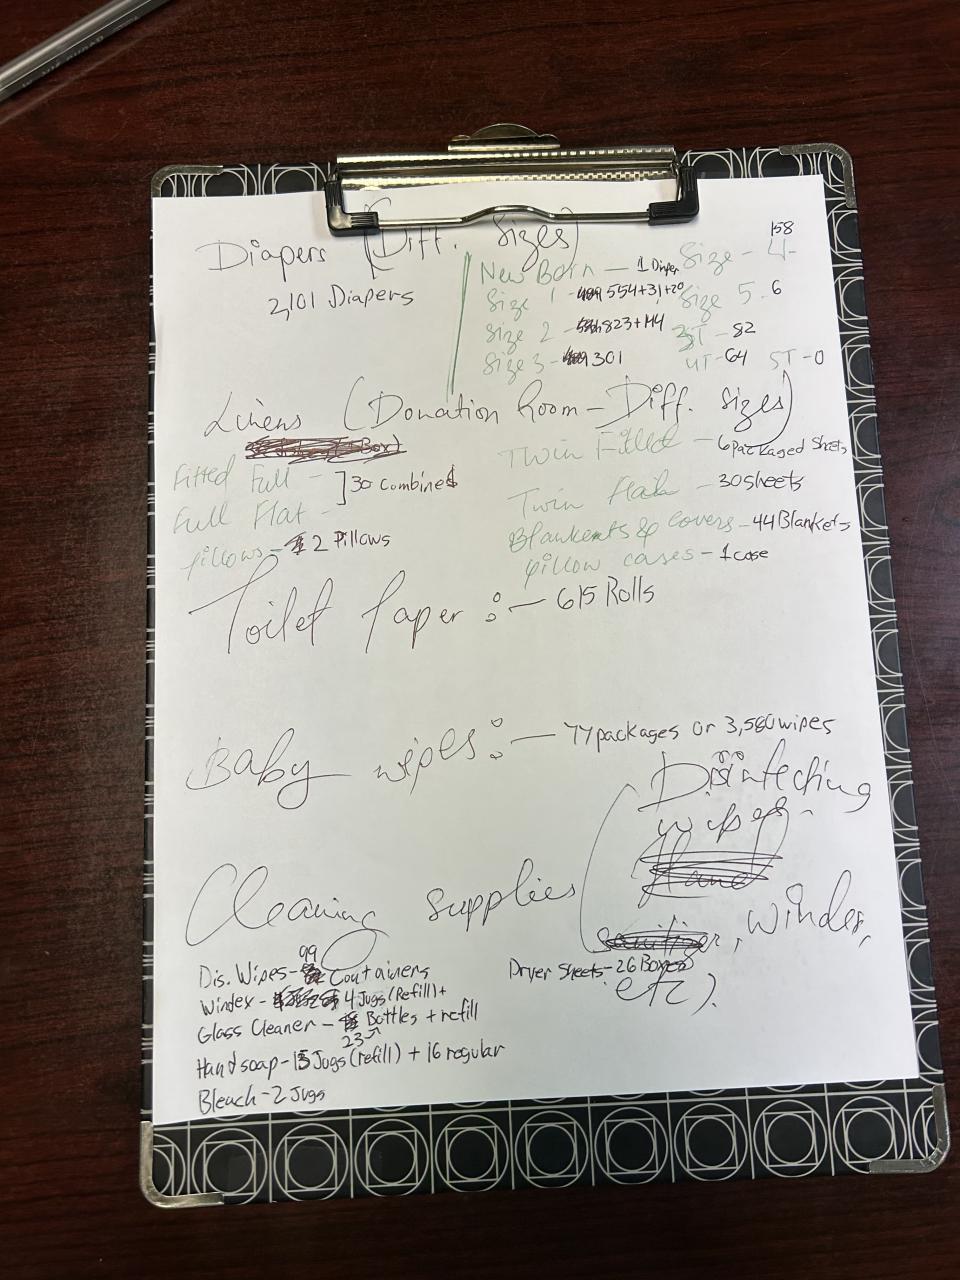 Diapers (Diff. Sizes)
2,101 Diapers
New Born — 1 Diaper
Size 1 - 554+31+20
Size 2 - 823+144
Size 3 - 301
Size - 4- 158
Size 5. 6
3T - 82
4T - 64 5T - 0
Linens (Donation Room - Diff. sizes)
Box)
Fitted Full -
Full Flat -
] 30 combined
pillows - 2 Pillows
Twin Fitted - 6 packaged Sheets
Twin Flat - 30 sheets
Blankents & covers - 44 Blankets
pillow cases - 1 case
Toilet Paper : — 615 Rolls
Baby wipes : — 77 packages or 3,580 wipes
Cleaning supplies
( Disinfecting
wipes -
Hand
sanitizer, windex,
etc).
Dis. Wipes - 99 Containers
Windex - 4 Jugs (Refill) +
Glass Cleaner - 23 Bottles + refill
Hand soap - 15 Jugs (refill) + 16 regular
Bleach - 2 Jugs
Dryer Sheets - 26 Boxes